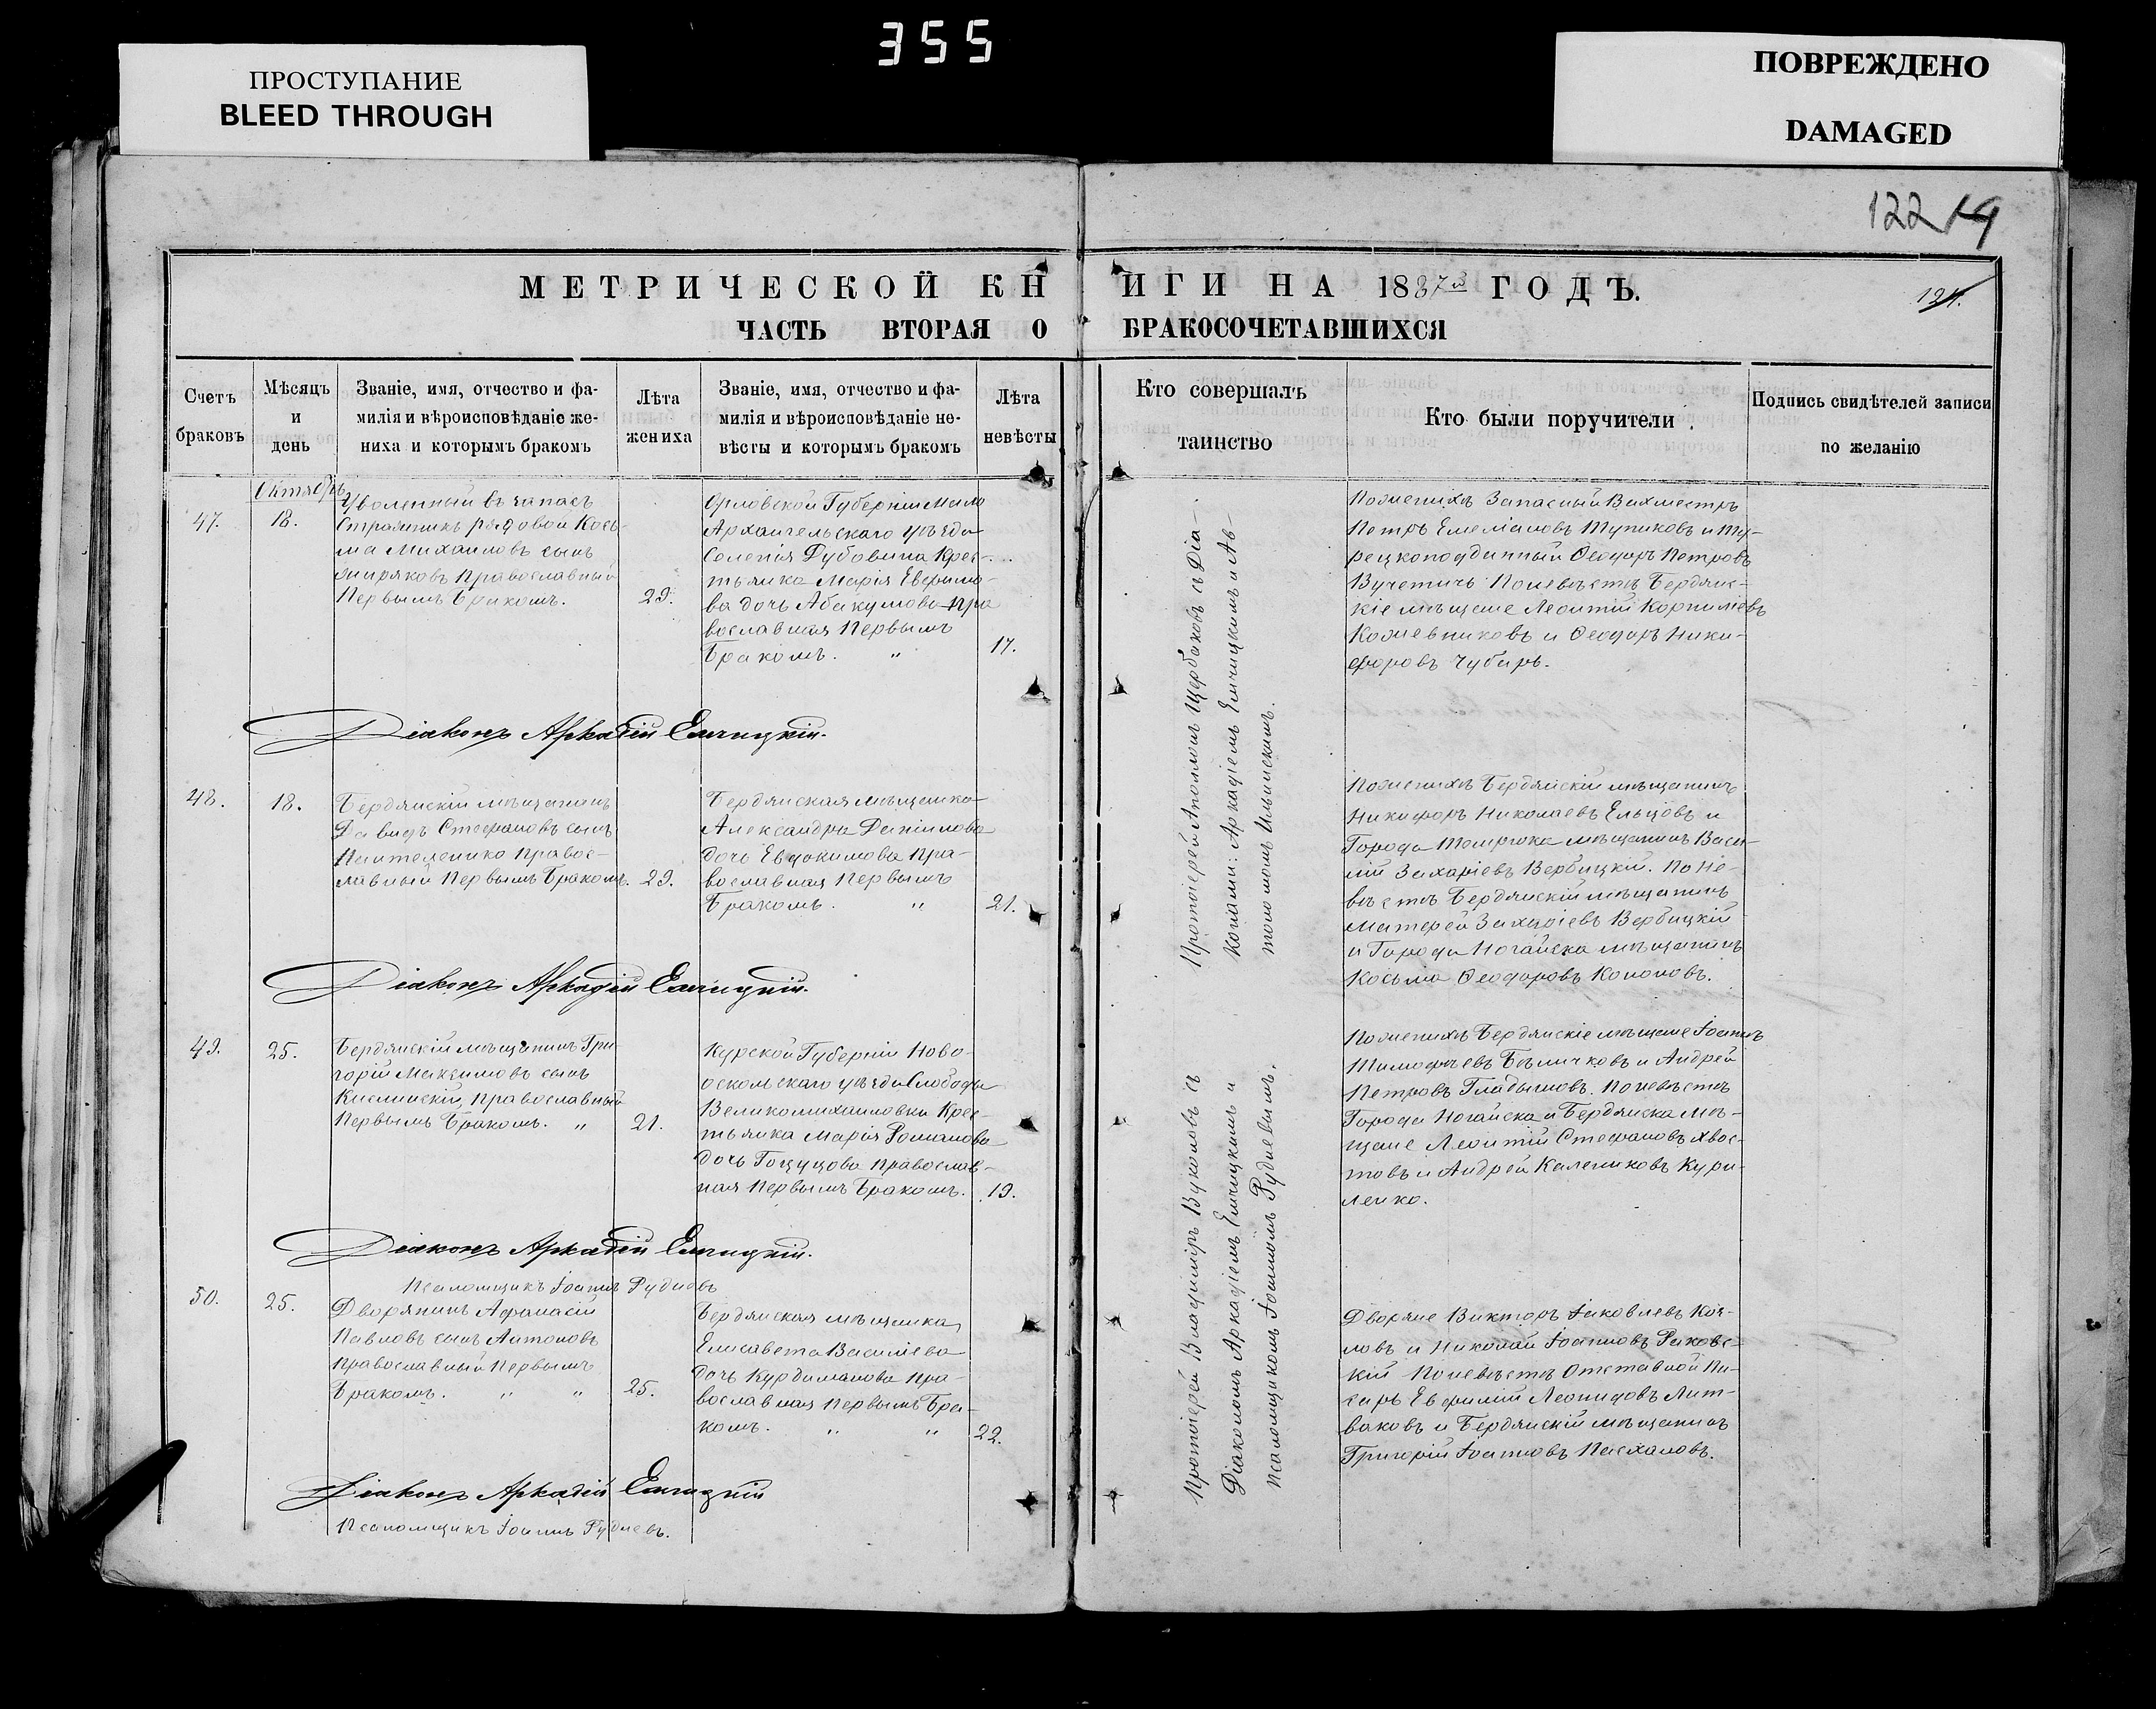 355
ПРОСТУПАНИЕ
BLEED THROUGH
ПОВРЕЖДЕНО
DAMAGED
122
19
МЕТРИЧЕСКОЙ КНИГИ НА 1887й ГОДЪ.
121.
ЧАСТЬ ВТОРАЯ О БРАКОСОЧЕТАВШИХСЯ
Счетъ
браковъ
Мѣсяцъ
и
день
Званіе, имя, отчество и фа-
милія и вѣроисповѣданіе же-
ниха и которымъ бракомъ
Лѣта
жениха
Званіе, имя, отчество и фа-
милія и вѣроисповѣданіе не-
вѣсты и которымъ бракомъ
Лѣта
невѣсты
Кто совершалъ
таинство
Кто были поручители.
Подпись свидѣтелей записи
по желанію
Октябрь
47.
18.
Уволенный въ запасъ
Стражникъ рядовой Кось-
ма Михаиловъ сынъ
Православный
Первымъ Бракомъ.
29.
Орловской Губерніи Мало
Архангельскаго уѣзда
Селенія Дубовика Крес-
тьянка Марія Евфимо-
ва дочь Абакумова Пра
вославная Первымъ
Бракомъ. "
17.
Протоіерей Аполлонъ Щербаковъ съ Діа-
конами: Аркадіемъ Емчицкимъ и Ав-
тономомъ Ильинскимъ.
Пожениха Запасный Вахмистръ
Петръ Емеліановъ Тупиковъ и Ту-
рецкоподданный Ѳеодоръ Петровъ
Вучетичь Поневѣстѣ Бердянс-
кіе мѣщане Леонтій Корниліевъ
Кожевниковъ и Ѳеодоръ Ники-
форовъ Чубарь.
Діаконъ Аркадій Емчицкій.
48.
18.
Бердянскій мѣщанинъ
Давидъ Стефановъ сынъ
Пантеленко Правос-
лавный Первымъ Бракомъ.
29.
Бердянская мѣщанка
Александра Даніилова
дочь Евдокимова Пра-
вославная Первымъ
Бракомъ. "
21.
Пожениха Бердянскій мѣщанинъ
Никифоръ Николаевъ Ельцовъ и
Города Темрюка мѣщанинъ Васи-
лій Захаріевъ Вербицкій. По Не-
вѣстѣ Бердянскій мѣщанинъ
Матфей Захаріевъ Вербицкій
и Города Ногайска мѣщанинъ
Косьма Ѳеодоровъ Кононовъ.
Діаконъ Аркадій Емчицкій.
49.
25.
Бердянскій мѣщанинъ Гри
горій Максимовъ сынъ
Кислинскій, Православный
Первымъ Бракомъ. "
21.
Курской Губерніи Ново-
оскольскаго уѣзда Слободы
Великомихаиловки Крес-
тьянка Марія Романова
дочь Православ-
ная Первымъ Бракомъ.
19.
Протоіерей Владиміръ Вуколовъ съ
Діакономъ Аркадіемъ Емчицкимъ и
Псаломщикомъ Іоанномъ Рудневымъ.
Пожениха Бердянскіе мѣщане Іоаннъ
Тимофѣевъ Бѣличковъ и Андрей
Петровъ Гладышовъ. Поневѣстѣ
Города Ногайска и Бердянска мѣ-
щане Леонтій Стефановъ Хвос-
товъ и Андрей Калениковъ Кури-
ленко.
Діаконъ Аркадій Емчицкій.
Псаломщикъ Іоаннъ Рудневъ
50.
25.
Дворянинъ Афанасій
Павловъ сынъ Антоновъ
Православный Первымъ
Бракомъ. " "
25.
Бердянская мѣщанка,
Елисавета Василіева
дочь Курдиманова Пра-
вославная Первымъ Бра-
комъ. " "
22.
Дворяне Викторъ Іаковлевъ Коз-
ловъ и Николай Іоанновъ Раковс-
кій Поневѣстѣ Отставной Пи-
сарь Евфимій Леонидовъ Лит-
ваковъ и Бердянскій мѣщанинъ
Григорій Іоанновъ Пасхаловъ.
Діаконъ Аркадій Емчицкій
Псаломщикъ Іоаннъ Рудневъ.